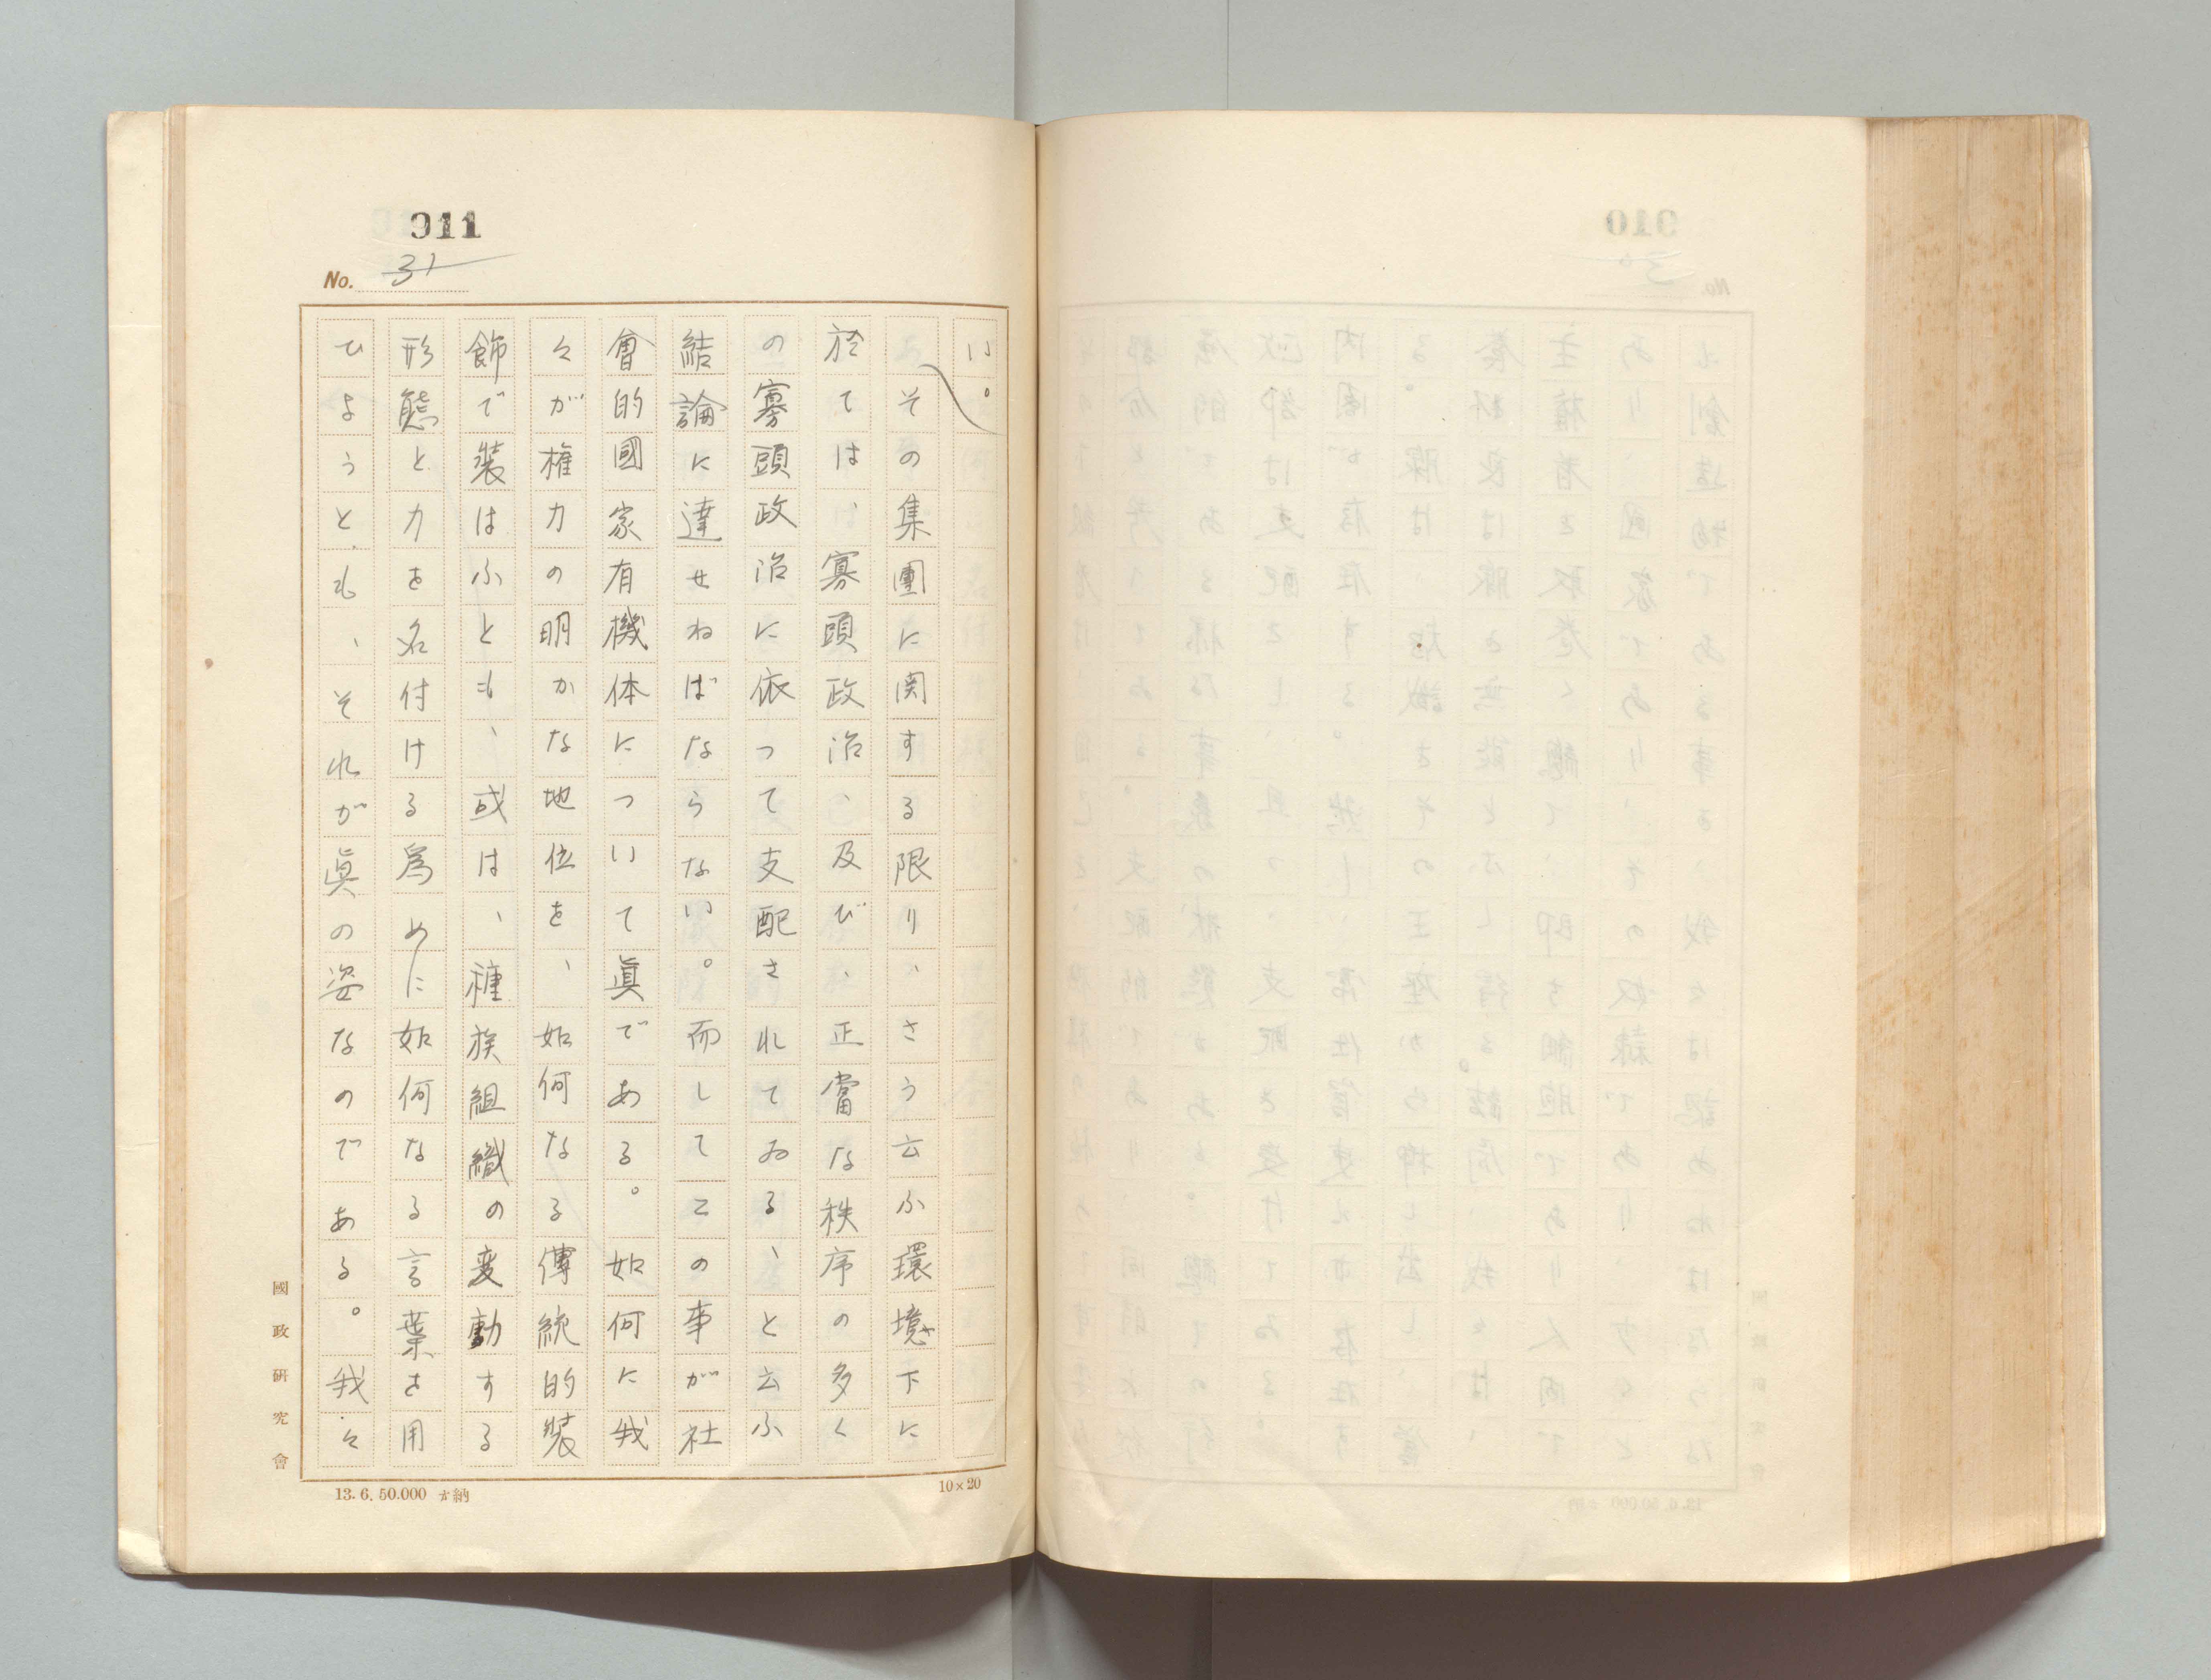 911
No. 31
い。
その集團に関する限り、さう云ふ環境下に
於ては、寡頭政治、及び、正當な秩序の多く
の寡頭政治に依つて支配されてゐる、と云ふ
結論に達せねばならない。而してこの事が社
會的國家有機体について眞である。如何に我
々が権力の明かな地位を、如何なる傳統的装
飾で装はふとも、或は、種族組織の変動する
形態と力を名付ける爲めに如何なる言葉を用
ひようとも、それが眞の姿なのである。我々
國政研究會
13.6.50.000 納
10×20